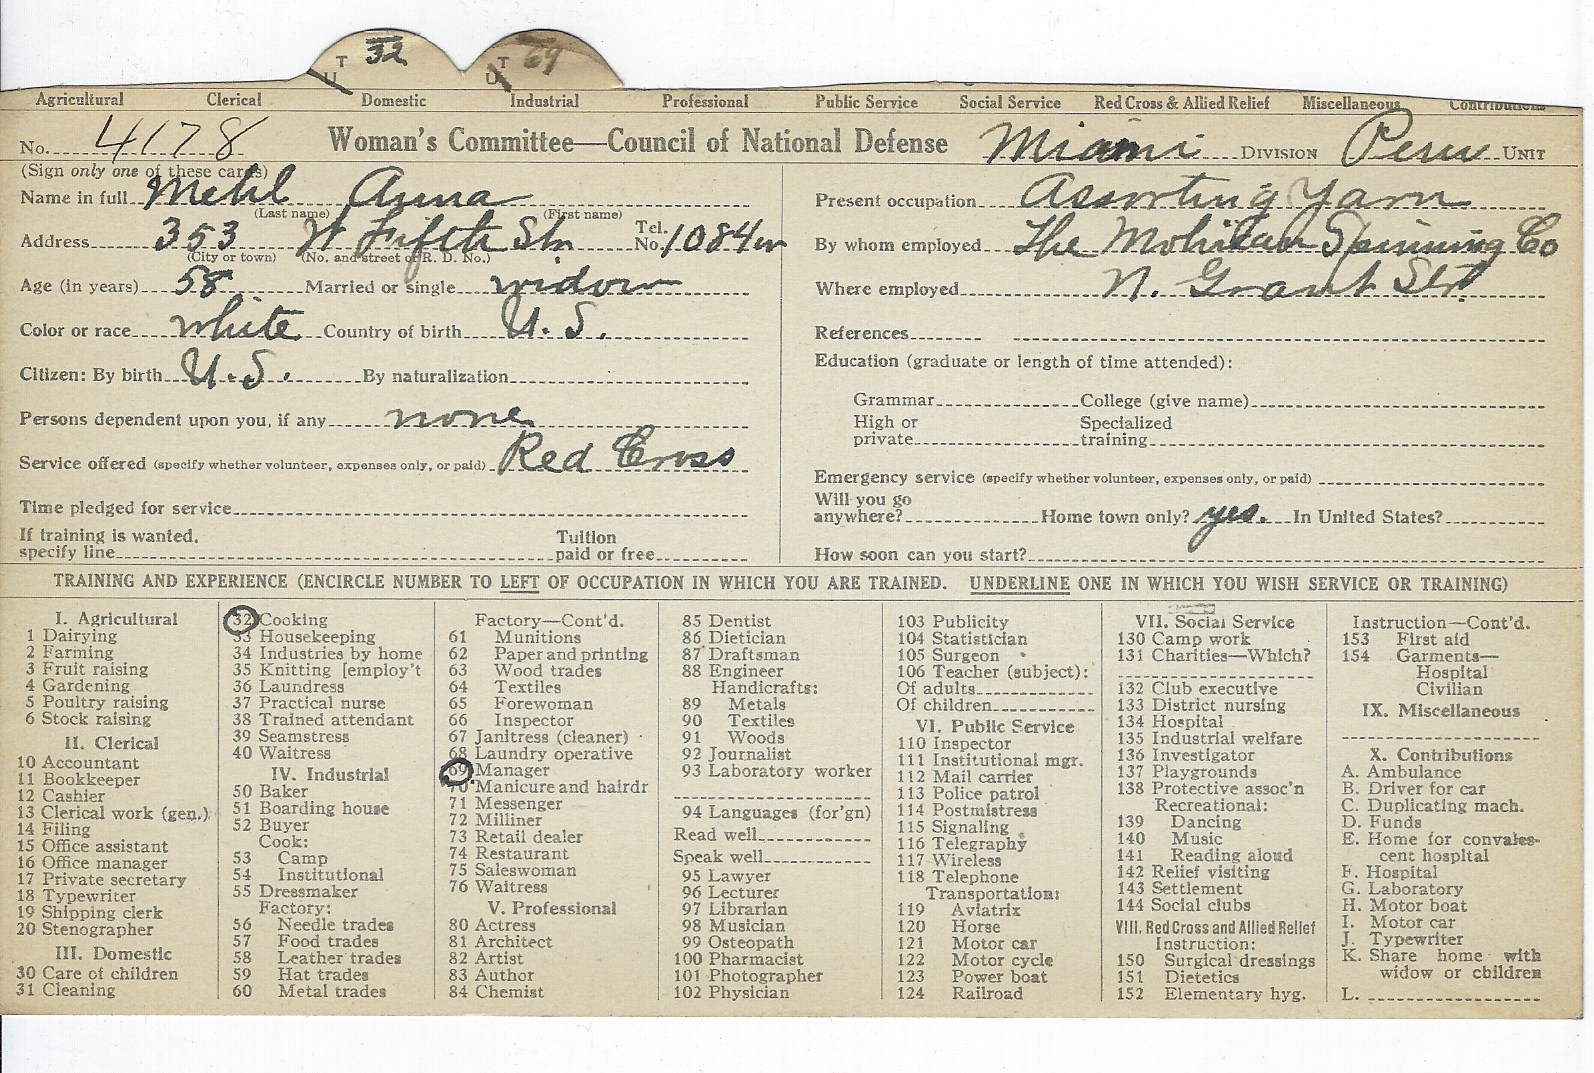 T 32 T 69
U U
Agricultural Clerical Domestic Industrial Professional Public Service Social Service Red Cross & Allied Relief Miscellaneous Contributions
No. 4178 Woman's Committee—Council of National Defense Miami DIVISION Peru UNIT
(Sign only one of these cards)
Name in full Mehl Anna
(Last name) (First name)
Address 353 W Fifth Str Tel. No. 1084w
(City or town) (No. and street or R. D. No.)
Age (in years) 58 Married or single widow
Color or race white Country of birth U. S.
Citizen: By birth U. S. By naturalization
Persons dependent upon you, if any none
Service offered (specify whether volunteer, expenses only, or paid) Red Cross
Time pledged for service
If training is wanted, Tuition
specify line paid or free
Present occupation Assorting Yarn
By whom employed The Mohican Spinning Co
Where employed N. Grant Str
References
Education (graduate or length of time attended):
Grammar College (give name)
High or Specialized
private training
Emergency service (specify whether volunteer, expenses only, or paid)
Will you go
anywhere? Home town only? yes. In United States?
How soon can you start?
TRAINING AND EXPERIENCE (ENCIRCLE NUMBER TO LEFT OF OCCUPATION IN WHICH YOU ARE TRAINED. UNDERLINE ONE IN WHICH YOU WISH SERVICE OR TRAINING)
I. Agricultural
1 Dairying
2 Farming
3 Fruit raising
4 Gardening
5 Poultry raising
6 Stock raising
II. Clerical
10 Accountant
11 Bookkeeper
12 Cashier
13 Clerical work (gen.)
14 Filing
15 Office assistant
16 Office manager
17 Private secretary
18 Typewriter
19 Shipping clerk
20 Stenographer
III. Domestic
30 Care of children
31 Cleaning
32 Cooking
33 Housekeeping
34 Industries by home
35 Knitting [employ't
36 Laundress
37 Practical nurse
38 Trained attendant
39 Seamstress
40 Waitress
IV. Industrial
50 Baker
51 Boarding house
52 Buyer
Cook:
53 Camp
54 Institutional
55 Dressmaker
Factory:
56 Needle trades
57 Food trades
58 Leather trades
59 Hat trades
60 Metal trades
Factory—Cont'd.
61 Munitions
62 Paper and printing
63 Wood trades
64 Textiles
65 Forewoman
66 Inspector
67 Janitress (cleaner)
68 Laundry operative
69 Manager
70 Manicure and hairdr
71 Messenger
72 Milliner
73 Retail dealer
74 Restaurant
75 Saleswoman
76 Waitress
V. Professional
80 Actress
81 Architect
82 Artist
83 Author
84 Chemist
85 Dentist
86 Dietician
87 Draftsman
88 Engineer
Handicrafts:
89 Metals
90 Textiles
91 Woods
92 Journalist
93 Laboratory worker
94 Languages (for'gn)
Read well
Speak well
95 Lawyer
96 Lecturer
97 Librarian
98 Musician
99 Osteopath
100 Pharmacist
101 Photographer
102 Physician
103 Publicity
104 Statistician
105 Surgeon
106 Teacher (subject):
Of adults
Of children
VI. Public Service
110 Inspector
111 Institutional mgr.
112 Mail carrier
113 Police patrol
114 Postmistress
115 Signaling
116 Telegraphy
117 Wireless
118 Telephone
Transportation:
119 Aviatrix
120 Horse
121 Motor car
122 Motor cycle
123 Power boat
124 Railroad
VII. Social Service
130 Camp work
131 Charities—Which?
132 Club executive
133 District nursing
134 Hospital
135 Industrial welfare
136 Investigator
137 Playgrounds
138 Protective assoc'n
Recreational:
139 Dancing
140 Music
141 Reading aloud
142 Relief visiting
143 Settlement
144 Social clubs
VIII. Red Cross and Allied Relief
Instruction:
150 Surgical dressings
151 Dietetics
152 Elementary hyg.
Instruction—Cont'd.
153 First aid
154 Garments—
Hospital
Civilian
IX. Miscellaneous
X. Contributions
A. Ambulance
B. Driver for car
C. Duplicating mach.
D. Funds
E. Home for convales-
cent hospital
F. Hospital
G. Laboratory
H. Motor boat
I. Motor car
J. Typewriter
K. Share home with
widow or children
L.